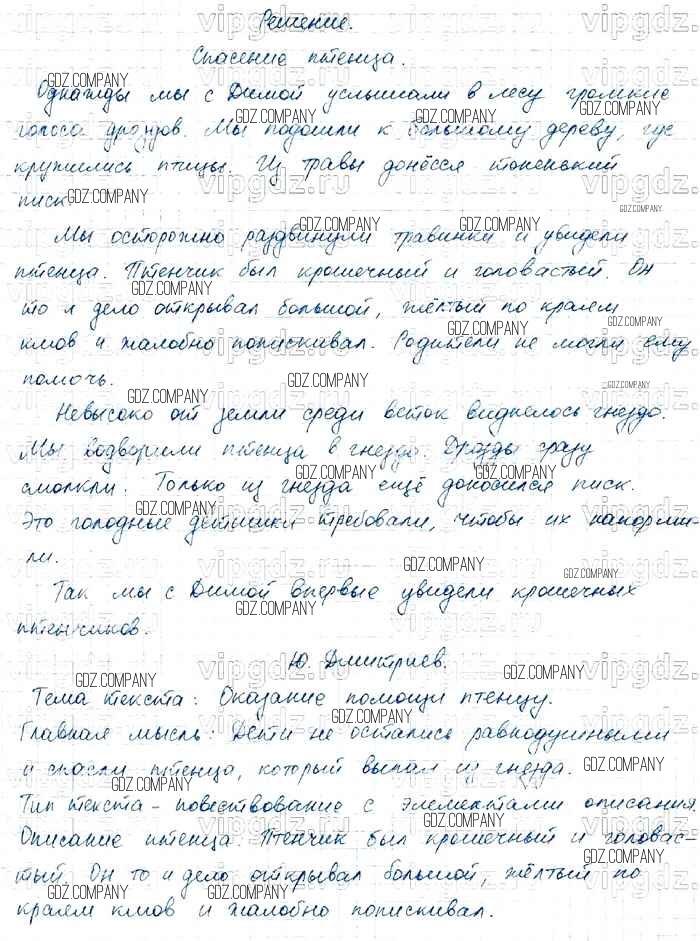 Решение.
Спасение птенца.
Однажды мы с Димой услышали в лесу громкие
голоса дроздов. Мы подошли к большому дереву, где
кружились птицы. Из травы донёсся тоненький
писк.
Мы осторожно раздвинули травинки и увидели
птенца. Птенчик был крошечный и головастый. Он
то и дело открывал большой, жёлтый по краям
клюв и жалобно попискивал. Родители не могли ему
помочь.
Невысоко от земли среди веток виднелось гнездо.
Мы водворили птенца в гнездо. Дрозды сразу
смолкли. Только из гнезда ещё доносился писк.
Это голодные детишки требовали, чтобы их накорми-
ли.
Так мы с Димой впервые увидели крошечных
птенчиков.
Ю. Дмитриев.
Тема текста: Оказание помощи птенцу.
Главная мысль: Дети не остались равнодушными
и спасли птенца, который выпал из гнезда.
Тип текста - повествование с элементами описания.
Описание птенца: Птенчик был крошечный и головас-
тый. Он то и дело открывал большой, жёлтый по
краям клюв и жалобно попискивал.